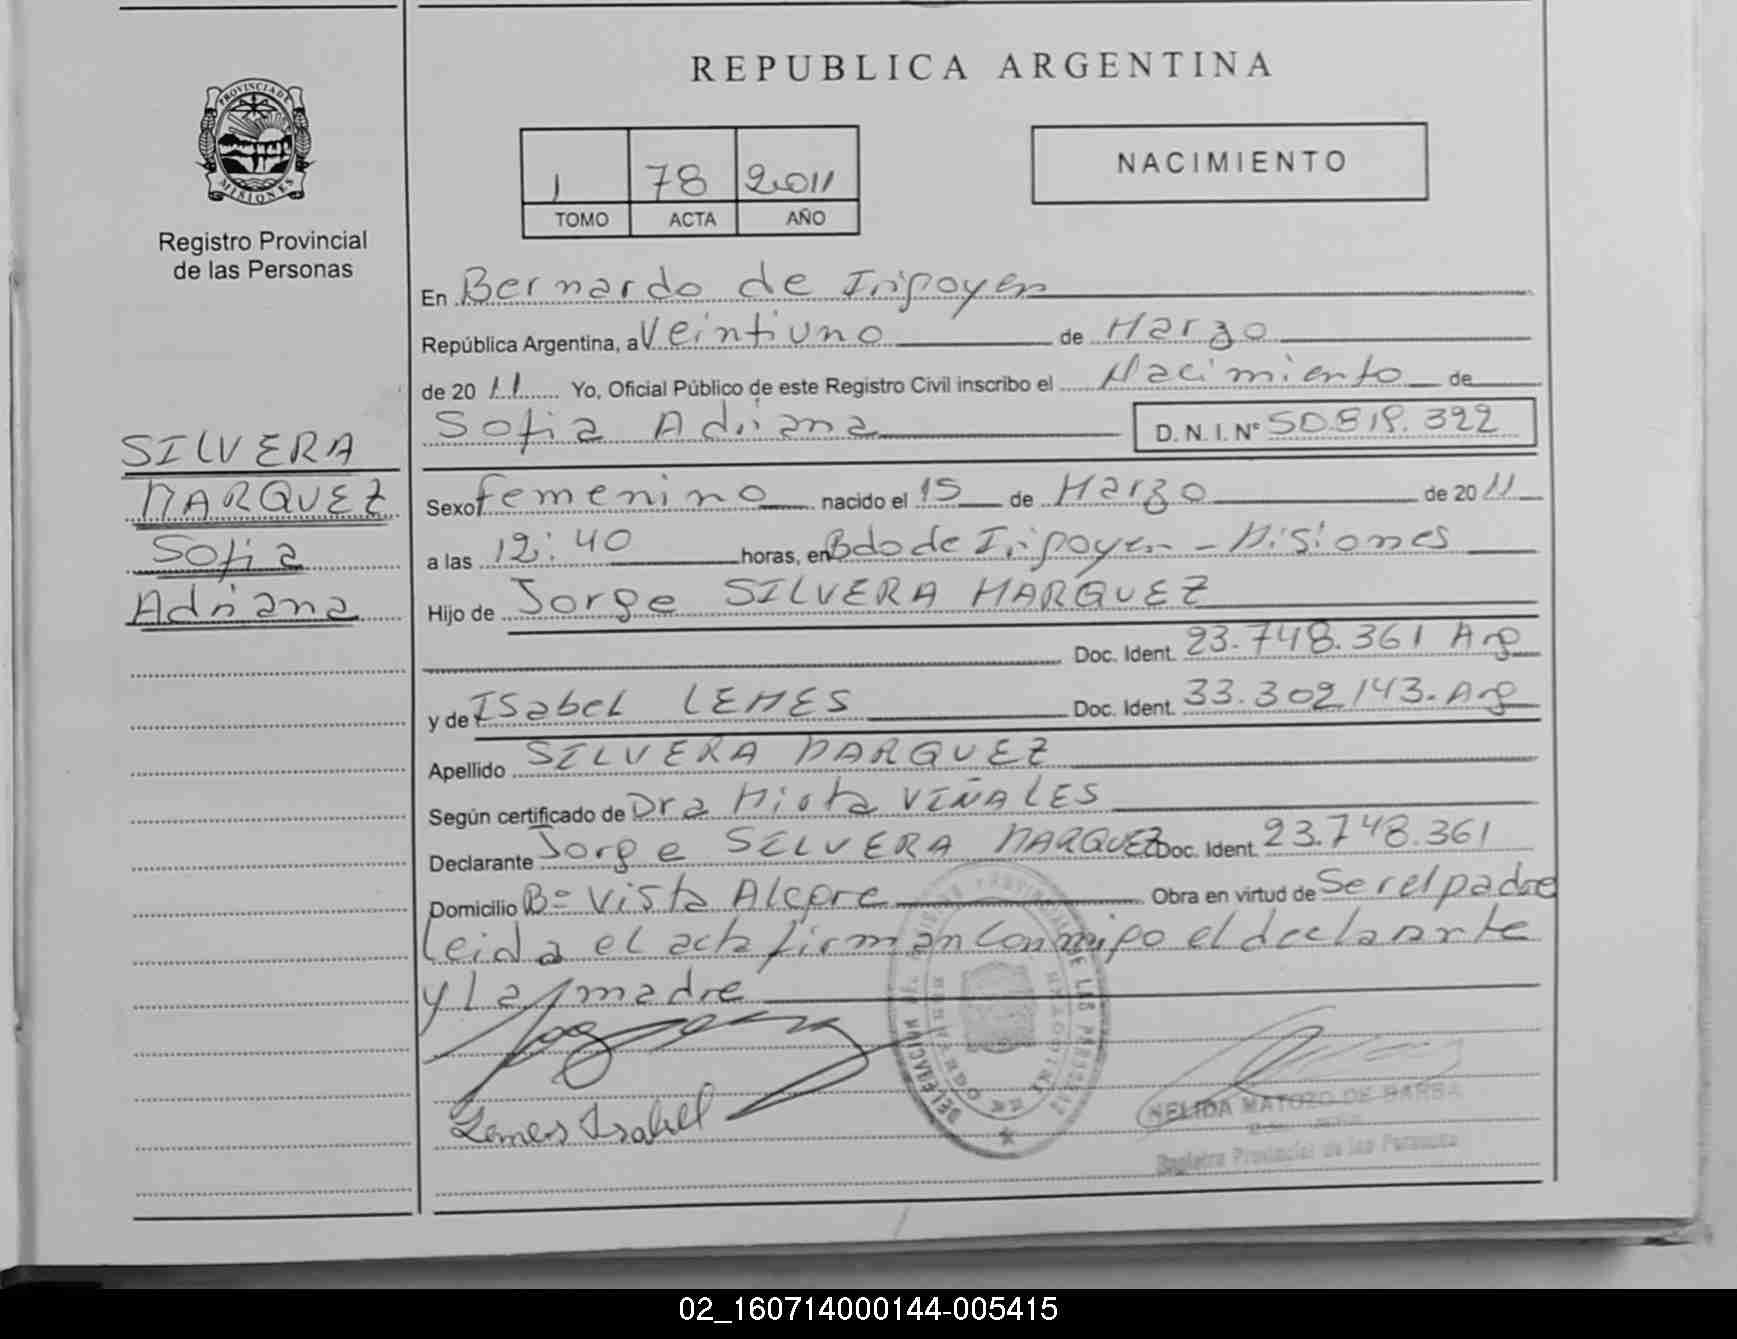 REPUBLICA ARGENTINA
PROVINCIA DE
MISIONES
Registro Provincial
de las Personas
1 78 2.011
TOMO ACTA AÑO
NACIMIENTO
SILVERA
MARQUEZ
Sofia
Adriana
En Bernardo de Irigoyen
República Argentina, a Veintiuno de Marzo
de 20 11 Yo, Oficial Público de este Registro Civil inscribo el Nacimiento de
Sofia Adriana D.N.I. N° 50.819.322
Sexo femenino nacido el 15 de Marzo de 20 11
a las 12:40 horas, en Bdo de Irigoyen - Misiones
Hijo de Jorge SILVERA MARQUEZ
Doc. Ident. 23.748.361 Arg
y de Isabel LEMES Doc. Ident. 33.302.143. Arg
Apellido SILVERA MARQUEZ
Según certificado de Dra Mirta VIÑALES
Declarante Jorge SILVERA MARQUEZ Doc. Ident. 23.748.361
Domicilio B= Vista Alegre Obra en virtud de Ser el padre
Leida el acta firman conmigo el declarante
y la madre
Lemes Isabel
NELIDA MATOZO DE BARBA
Registro Provincial de las Personas
02_160714000144-005415